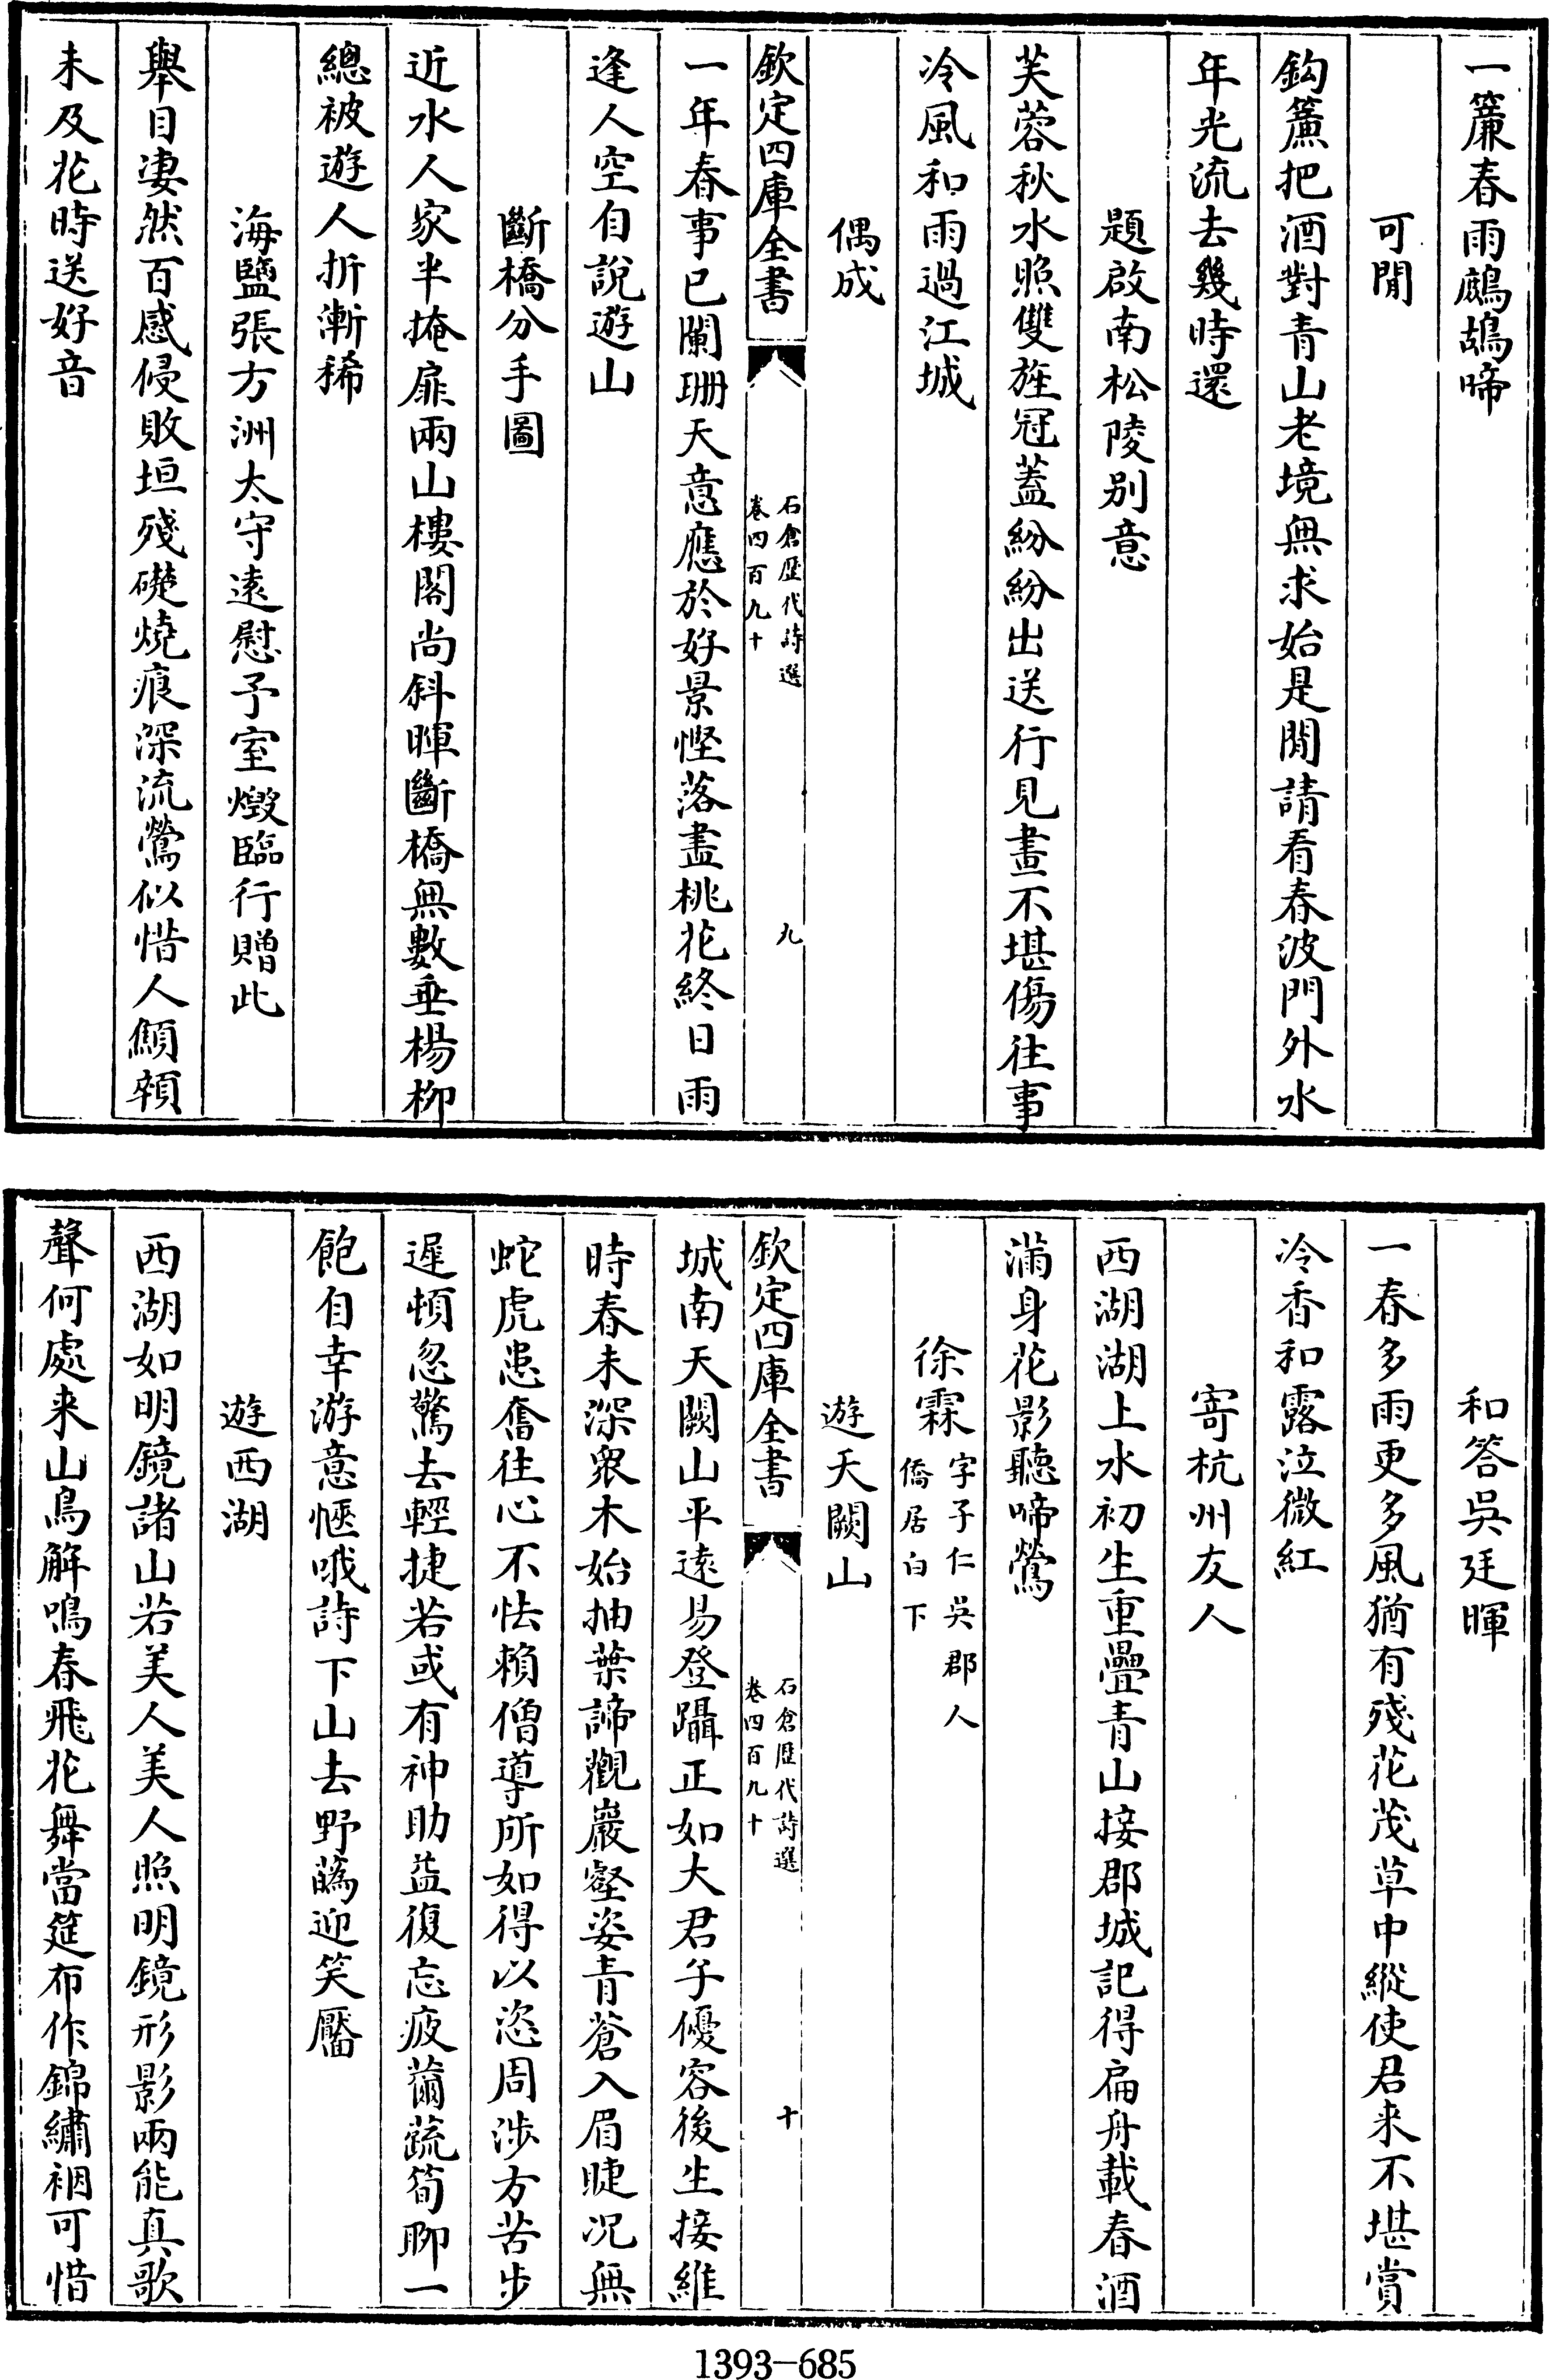 一簾春雨鷓鴣啼
可閒
鈎簾把酒對青山老境無求始是閒請看春波門外水
年光流去幾時還
題啟南松陵别意
芙蓉秋水照雙旌冠蓋紛紛出送行見畫不堪傷往事
冷風和雨過江城
偶成
欽定四庫全書
石倉歴代詩選
卷四百九十
九
一年春事已闌珊天意應於好景慳落盡桃花終日雨
逢人空自說遊山
斷橋分手圖
近水人家半掩扉兩山樓閣尚斜暉斷橋無數垂楊柳
總被遊人折漸稀
海鹽張方洲太守遠慰予室燬臨行贈此
舉目凄然百感侵敗垣殘礎燒痕深流鶯似惜人顦顇
未及花時送好音
和答吳廷暉
一春多雨更多風猶有殘花茂草中縱使君来不堪賞
冷香和露泣微紅
寄杭州友人
西湖湖上水初生重疊青山接郡城記得扁舟載春酒
滿身花影聽啼鶯
徐霖
字子仁吳郡人
僑居白下
遊天闕山
欽定四庫全書
石倉歴代詩選
卷四百九十
十
城南天闕山平遠易登躡正如大君子優容後生接維
時春未深衆木始抽葉諦觀巖壑姿青蒼入眉睫况無
蛇虎患奮往心不怯賴僧導所如得以恣周涉方苦步
遲頓忽驚去輕捷若或有神助益復忘疲薾蔬筍聊一
飽自幸游意愜哦詩下山去野蘤迎笑靨
遊西湖
西湖如明鏡諸山若美人美人照明鏡形影兩能真歌
聲何處来山鳥解鳴春飛花舞當筵布作錦繡裀可惜
1393-685